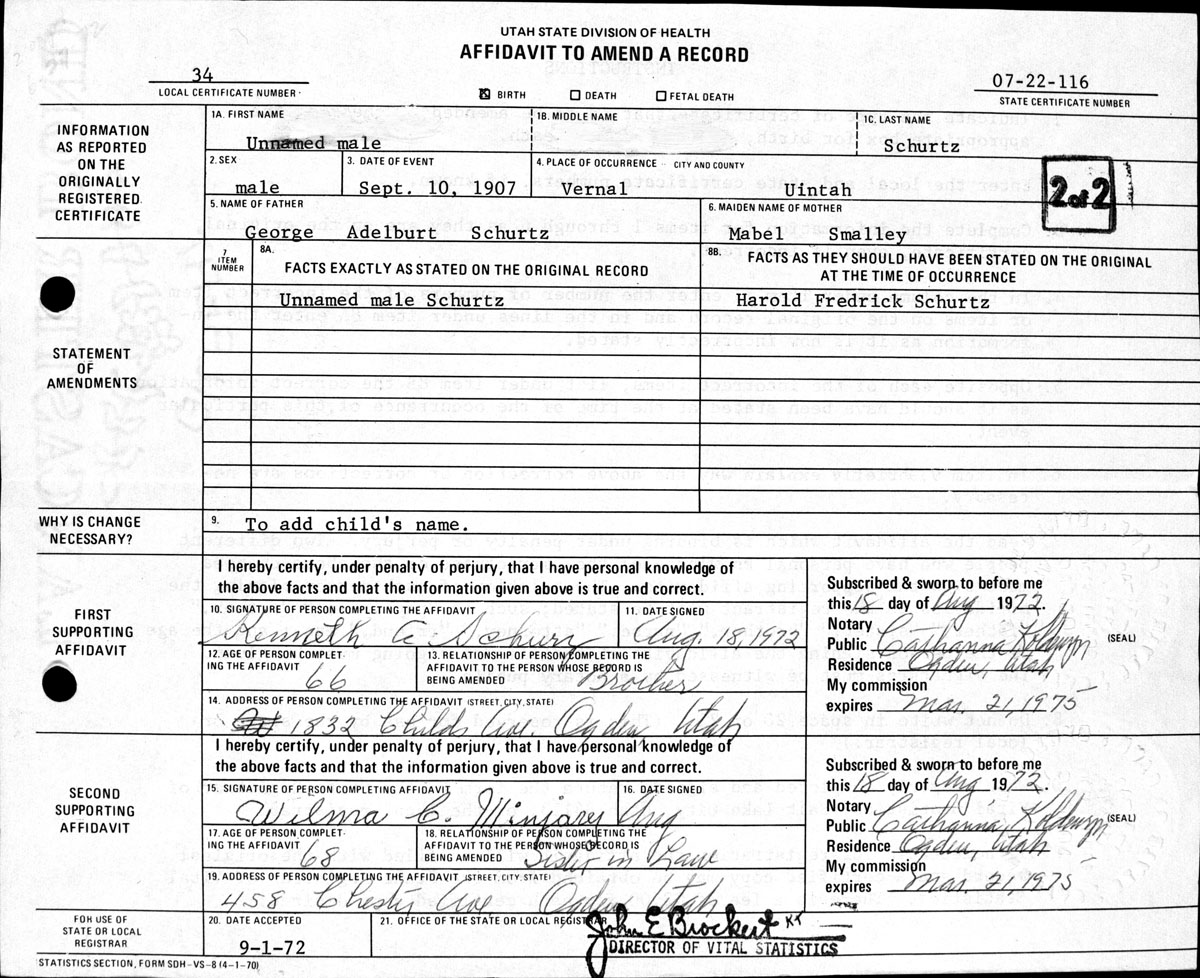 UTAH STATE DIVISION OF HEALTH
AFFIDAVIT TO AMEND A RECORD
34
LOCAL CERTIFICATE NUMBER
☒ BIRTH ☐ DEATH ☐ FETAL DEATH
07-22-116
STATE CERTIFICATE NUMBER
INFORMATION AS REPORTED ON THE ORIGINALLY REGISTERED CERTIFICATE
1A. FIRST NAME 1B. MIDDLE NAME 1C. LAST NAME
Unnamed male Schurtz
2. SEX 3. DATE OF EVENT 4. PLACE OF OCCURRENCE - CITY AND COUNTY
male Sept. 10, 1907 Vernal Uintah
2 of 2
5. NAME OF FATHER 6. MAIDEN NAME OF MOTHER
George Adelburt Schurtz Mabel Smalley
7. ITEM NUMBER
8A. FACTS EXACTLY AS STATED ON THE ORIGINAL RECORD
8B. FACTS AS THEY SHOULD HAVE BEEN STATED ON THE ORIGINAL
AT THE TIME OF OCCURRENCE
Unnamed male Schurtz Harold Fredrick Schurtz
STATEMENT OF AMENDMENTS
WHY IS CHANGE NECESSARY?
9. To add child's name.
FIRST SUPPORTING AFFIDAVIT
I hereby certify, under penalty of perjury, that I have personal knowledge of
the above facts and that the information given above is true and correct.
10. SIGNATURE OF PERSON COMPLETING THE AFFIDAVIT 11. DATE SIGNED
Kenneth Aug. 18, 1972
12. AGE OF PERSON COMPLETING THE AFFIDAVIT
66
13. RELATIONSHIP OF PERSON COMPLETING THE
AFFIDAVIT TO THE PERSON WHOSE RECORD IS
BEING AMENDED Brother
14. ADDRESS OF PERSON COMPLETING THE AFFIDAVIT (STREET, CITY, STATE)
1832 Childs Ave. Ogden, Utah
Subscribed & sworn to before me
this 18 day of Aug 1972.
Notary
Public Catharina (SEAL)
Residence Ogden, Utah
My commission
expires Mar. 21, 1975
SECOND SUPPORTING AFFIDAVIT
I hereby certify, under penalty of perjury, that I have personal knowledge of
the above facts and that the information given above is true and correct.
15. SIGNATURE OF PERSON COMPLETING THE AFFIDAVIT 16. DATE SIGNED
Wilma C. Aug
17. AGE OF PERSON COMPLETING THE AFFIDAVIT
68
18. RELATIONSHIP OF PERSON COMPLETING THE
AFFIDAVIT TO THE PERSON WHOSE RECORD IS
BEING AMENDED Sister in Law
19. ADDRESS OF PERSON COMPLETING THE AFFIDAVIT (STREET, CITY, STATE)
458 Chester Ave Ogden Utah
Subscribed & sworn to before me
this 18 day of Aug 1972.
Notary
Public Catharina (SEAL)
Residence Ogden, Utah
My commission
expires Mar. 21, 1975
FOR USE OF STATE OR LOCAL REGISTRAR
20. DATE ACCEPTED 21. OFFICE OF THE STATE OR LOCAL REGISTRAR
9-1-72 John E Brockert KT
DIRECTOR OF VITAL STATISTICS
STATISTICS SECTION, FORM SDH-VS-8 (4-1-70)